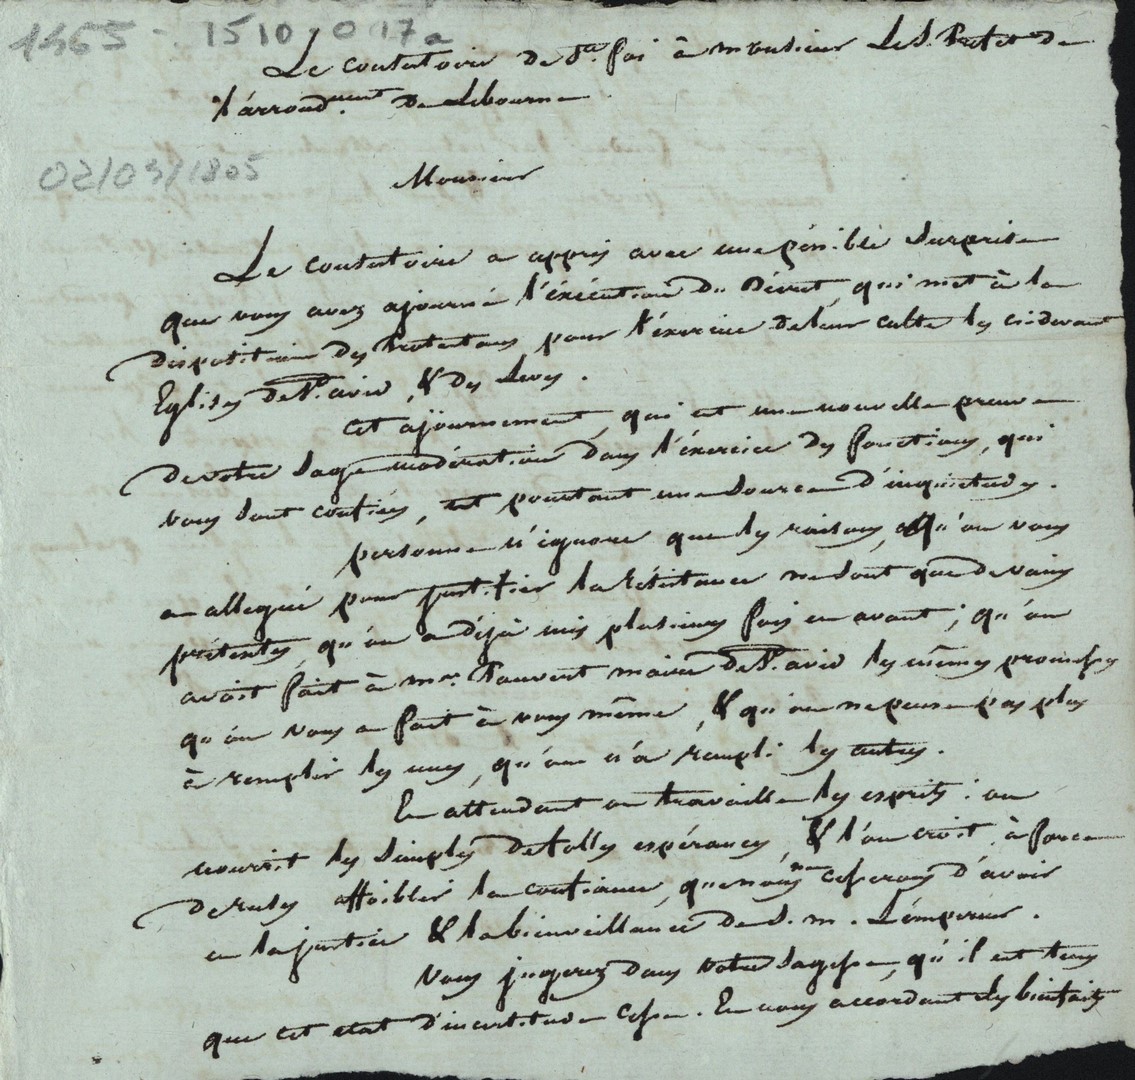 1465 - 1510 - 0017a
Le Consistoire de Ste. foi à monsieur Le S. Prefet de
l'arrondment. De Libourne
02/03/1805
Monsieur
Le consistoire a appris avec une pénible surprise
que vous avez ajourné l'éxécution du Décret, qui met à la
disposition des Protestans, pour l'éxercice de leur culte les ci-devant
Eglises de St. avid, & des Leves.
cet ajournement, qui est une nouvelle preuve
de votre sage modération dans l'éxercice des fonctions, qui
vous sont confiées, est pourtant une source d'inquiétudes.
personne n'ignore que les raisons, qu'on vous
a allegué pour justifier la résistance ne sont que de vains
prétextes, qu'on a déjà mis plusieurs fois en avant; qu'on
avoit fait à mr. Pauvert maire de St. avid les mêmes promesses
qu'on vous a fait à vous même, & qu'on ne pense pas plus
à remplir les unes, qu'on n'a rempli les autres.
En attendant on travaille les esprits: on
nourrit les simples de folles espérances, & l'on croit, à force
de ruses affoiblir la confiance, que nous ne cesserons d'avoir
en la justice & la bienveillance de S. m. L'empereur.
Vous jugerez dans votre sagesse, qu'il est tems
que cet etat d'incertitude cesse. En vous accordant les bienfaits